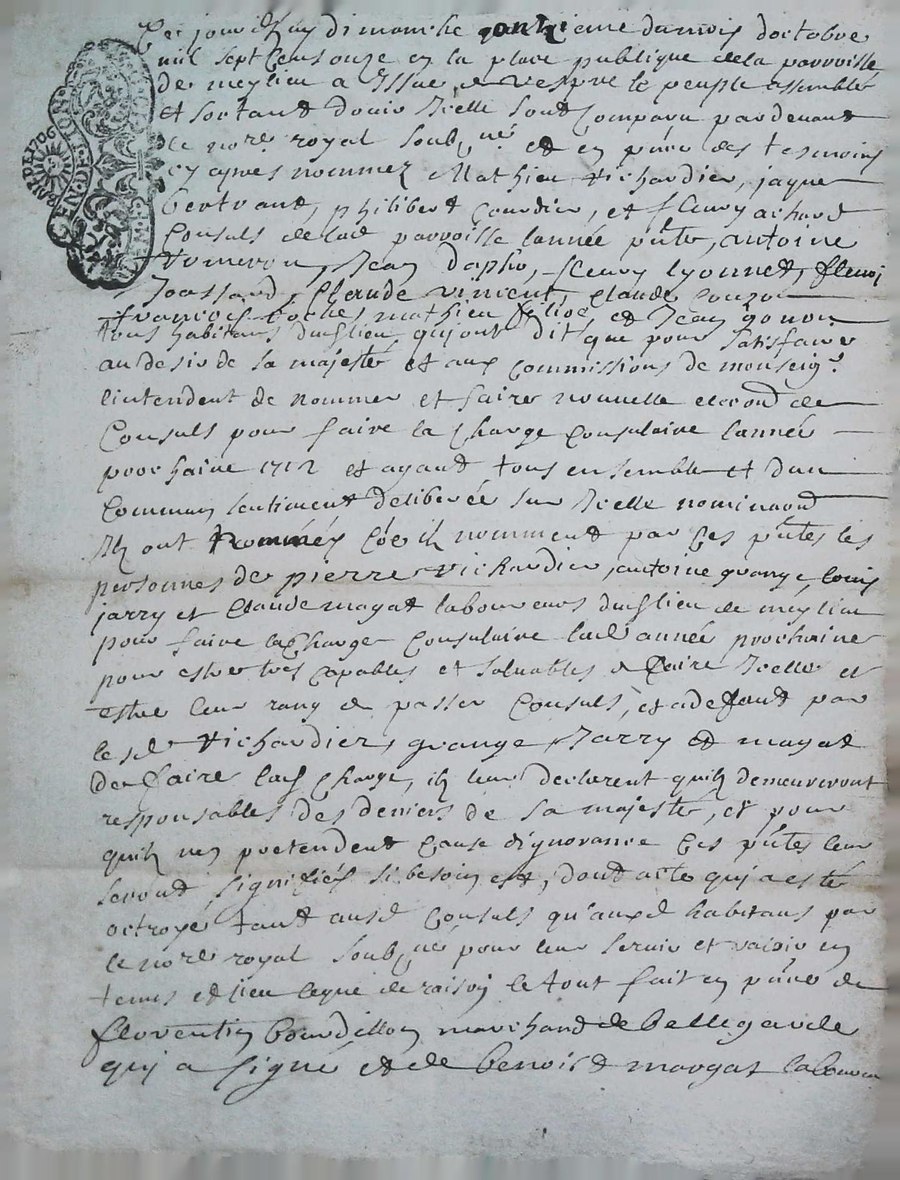 GEN. DE LION
Ce jourdhuy dimanche onzieme du mois doctobre
mil sept cens onze en la place publique de la parroisse
de meylieu a Issue de vespre le peuple assemble
et sortant douir Icelle sont comparu pardevant
le nore royal soubsne et en pnce des tesmoins
cy apres nommez Mathieu Vichardier, jaque
bertrant, philibert Courdier, et fleury achard
Consuls de lad parroisse lannée pnte, antoine
Jean dapho, fleury lyonnet, fleuri
Joassard, Claude vincent, Claude
francois mathieu et Jean gonon
tous habitans dud lieu, qui ont dit que pour satisfaire
au desir de sa majesté et aux commissions de monseigr
lintendent de nommer et faire nouvelle de
Consuls pour faire la charge Consulaire lannée
prochaine 1712 et ayant tous ensemble et dun
commun sentiment deliberée sur Icelle nominaon
Ils ont nommés Coe ils nomment par ces pntes les
personnes de pierre vichardier, antoine grange, louis
jarry et Claude mayat laboureurs dud lieu de meylieu
pour faire la charge Consulaire lad année prochaine
pour estre tres capables et soluables de faire Icelle et
estre leur rang de passer Consuls, et a defaut par
lesd Vichardier, grange Jarry et mayat
de faire lad charge, ils leur declarent quils demeureront
responsables des deniers de sa majesté, et pour
quils nen pretendent cause dignorance Ces pntes leur
seront signifiés si besoin est, dont acte qui a esté
octroyé tant ausd Consuls qu'auxd habitans par
le nore royal soubsne pour leur servir et valoir en
tems et lieu ceque de raison le tout fait en pnce de
florentin bourdillon marchand de bellegarde
qui a signé et de benoist margat laboureur